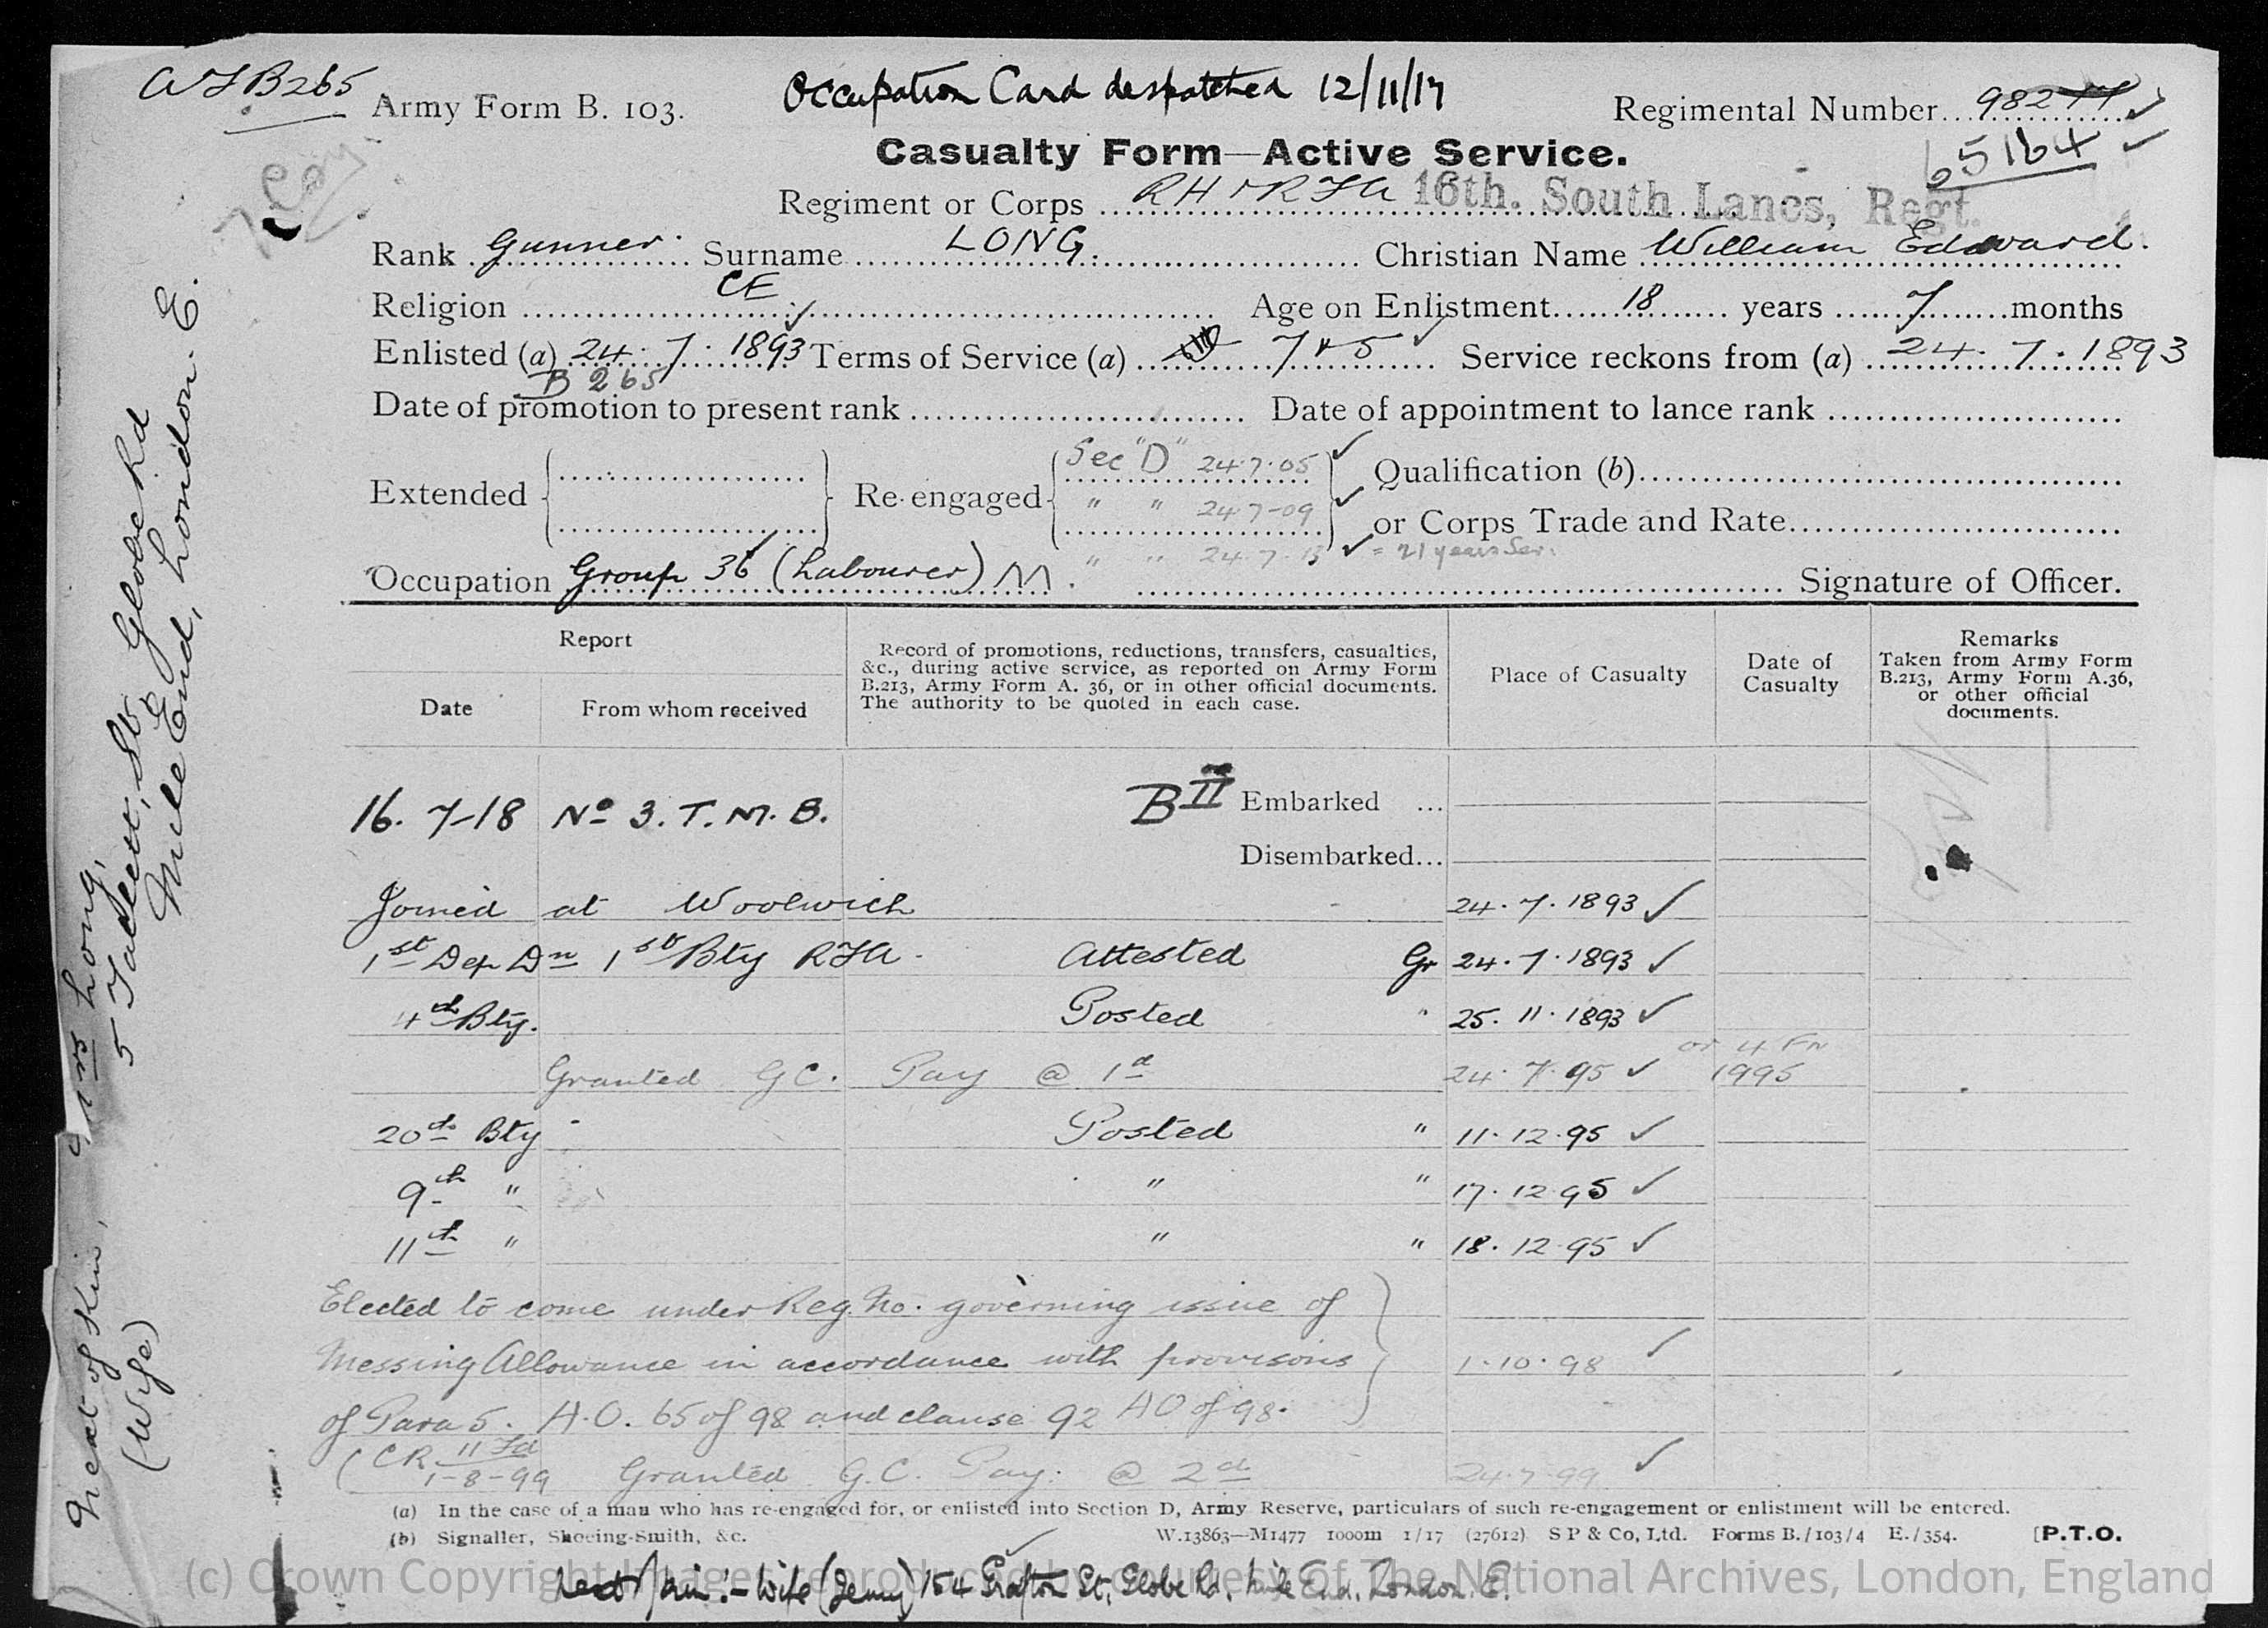 AFB265
Army Form B. 103.
Occupation Card despatched 12/11/17
Regimental Number 982
65164
Casualty Form—Active Service.
Regiment or Corps RH & RFA 16th. South Lancs, Regt.
Rank Gunner Surname LONG. Christian Name William Edward.
Religion CE Age on Enlistment 18 years 7 months
Enlisted (a) 24.7.1893 Terms of Service (a) 7 & 5 Service reckons from (a) 24.7.1893
B 265
Date of promotion to present rank Date of appointment to lance rank
Extended Re-engaged Sec "D" 24.7.05 Qualification (b)
" " 24.7-09
or Corps Trade and Rate
" " 24.7.13 = 21 years Ser.
Occupation Group 36 (Labourer) M. Signature of Officer.
Report
Record of promotions, reductions, transfers, casualties, &c., during active service, as reported on Army Form B.213, Army Form A. 36, or in other official documents. The authority to be quoted in each case.
Place of Casualty
Date of Casualty
Remarks Taken from Army Form B.213, Army Form A.36, or other official documents.
Date From whom received
16.7-18 No 3. T. M. B. B II Embarked ...
Disembarked...
Joined at Woolwich 24.7.1893
1st Dep Dn 1st Bty RFA. Attested Gr 24.7.1893
4th Bty. Posted " 25.11.1893
Granted GC. Pay @ 1d 24.7.95 1995
20th Bty Posted " 11.12.95
9th " " " 17.12.95
11th " " " 18.12.95
Elected to come under Reg. No. governing issue of
Messing Allowance in accordance with provisions 1.10.98
of Para 5. A.O. 65 of 98 and clause 92 AO of 98.
(CR 11 Fd 1-8-99 Granted G.C. Pay. @ 2d 24.7.99
(a) In the case of a man who has re-engaged for, or enlisted into Section D, Army Reserve, particulars of such re-engagement or enlistment will be entered.
(b) Signaller, Shoeing-Smith, &c. W.13863—M1477 1000m 1/17 (27612) S P & Co, Ltd. Forms B./103/4 E./354. [P.T.O.
Next Kin:- Wife (Jenny) 154 Grafton St, Globe Rd, Mile End, London. E.
(c) Crown Copyright Images reproduced by courtesy of The National Archives, London, England
Next of Kin, Mrs Long,
(Wife) 5 St, Globe Rd
Mile End, London. E.